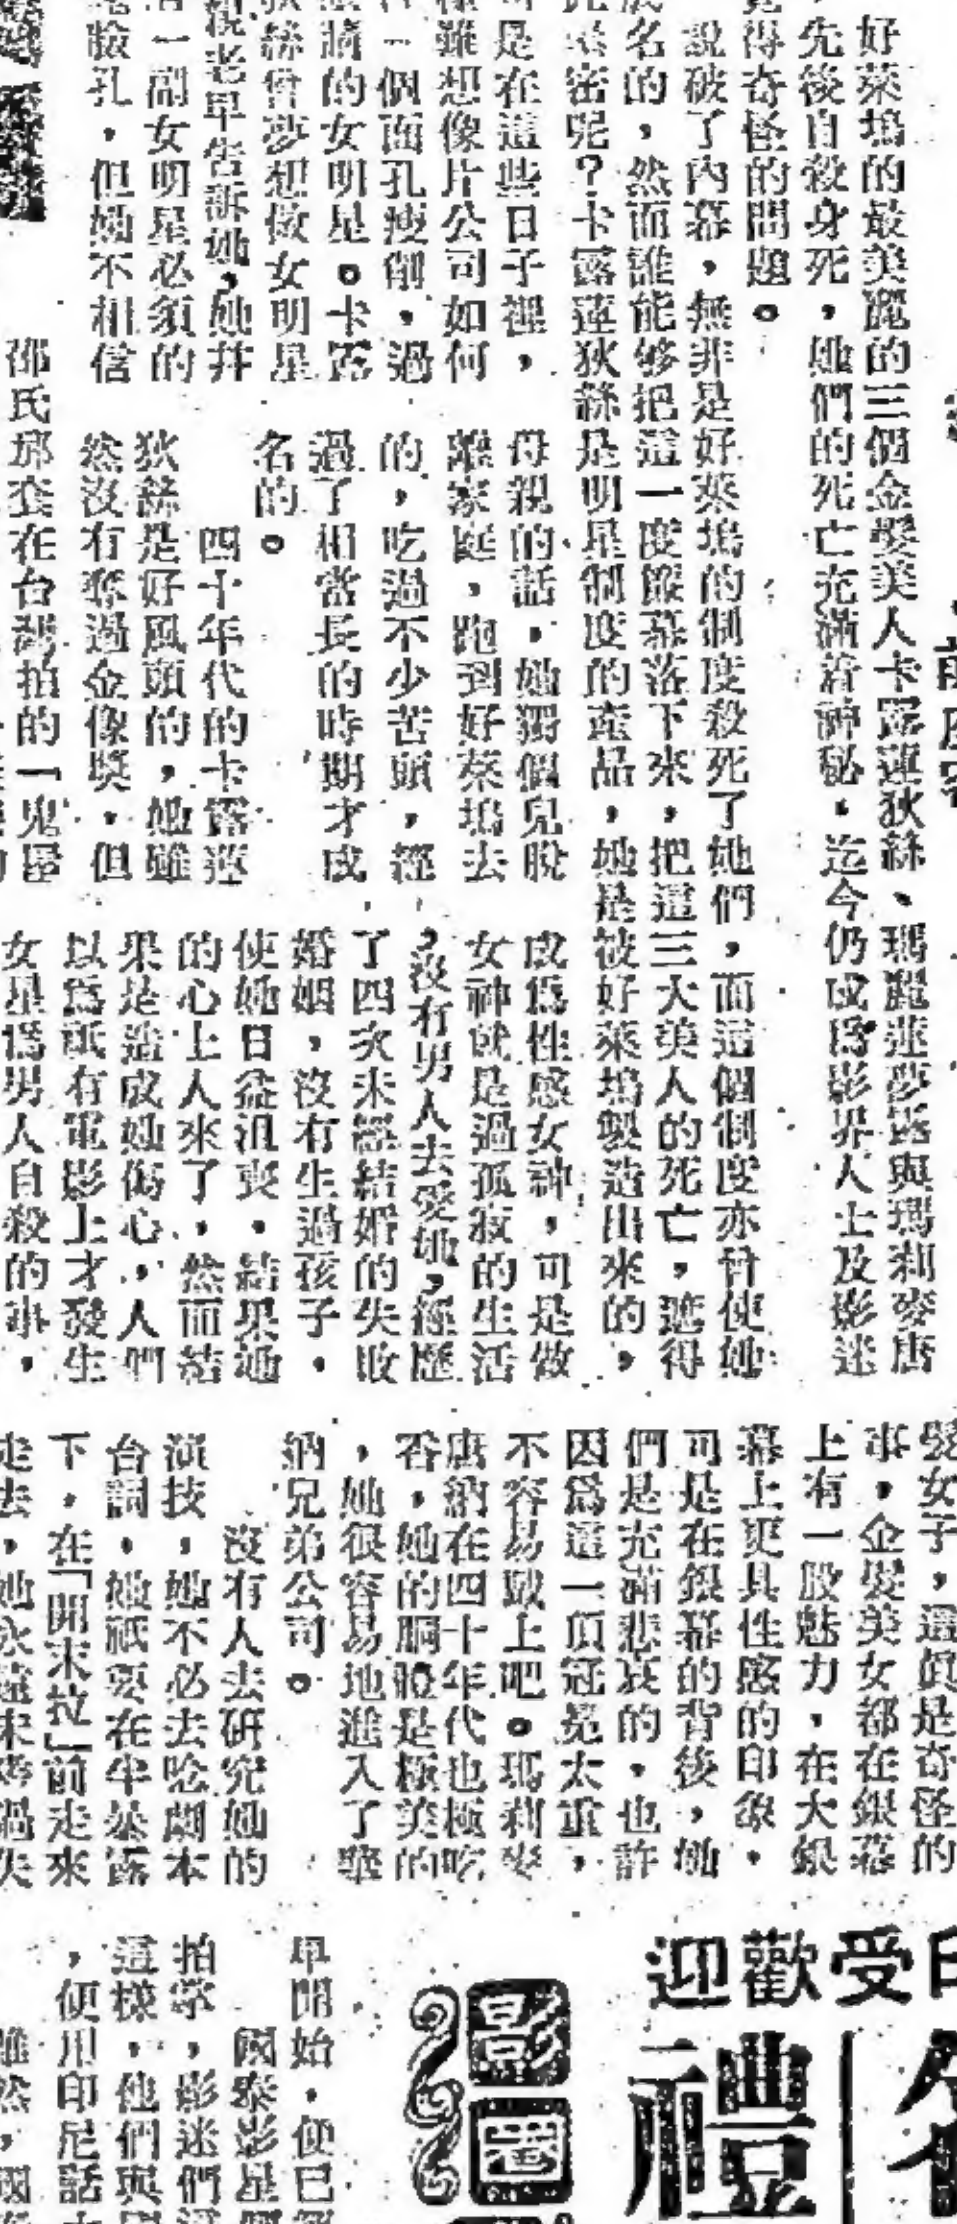 好萊塢的最美麗的三個金髮美人卡露蓮狄絲、瑪麗蓮夢露與瑪莉麥唐
先後自殺身死,她們的死亡充滿着神秘,迄今仍成爲影界人士及影迷
得奇怪的問題。
說破了內幕,無非是好萊塢的制度殺死了她們,而這個制度亦曾使她
名的,然而誰能够把這一度嚴幕落下來,把這三大美人的死亡,遮得
密呢?卡露蓮狄絲是明星制度的產品,她是被好萊塢製造出來的,
是在這些日子裡,
雖想像片公司如何
一個面孔瘦削,過
的女明星。卡露
絲曾夢想做女明星
老早告訴她,她幷
一副女明星必須的
臉孔,但她不相信
母親的話,她獨個兒脫
離家庭,跑到好萊塢去
的,吃過不少苦頭,經
過了相當長的時期才成
名的。
四十年代的卡露蓮
狄絲是好風頭的,她雖
然沒有奪過金像獎,但
成爲性感女神,可是做
女神就是過孤寂的生活
,沒有男人去愛她,經歷
了四次未經結婚的失敗
婚姻,沒有生過孩子,
使她日益沮喪,結果她
的心上人來了,然而結
果是造成她傷心,人們
以爲祇有電影上才發生
女星爲男人自殺的事,
髮女子,這眞是奇怪的
事,金髮美女都在銀幕
上有一股魅力,在大銀
幕上更具性感的印象,
可是在銀幕的背後,她
們是充滿悲哀的,也許
因爲這一頂冠冕太重,
不容易戴上吧。瑪莉麥
唐納在四十年代也極吃
香,她的胴體是極美的
,她很容易地進入了華
納兄弟公司。
沒有人去研究她的
演技,她不必去唸劇本
台詞,她祇要在半暴露
下,在「開末拉」前走來
走去,她永遠未
邵氏邪套在台灣拍的「鬼屋
受歡迎
禮
影國
早開始,便已
國泰影星
拍掌,影迷們
這樣,他們與
,便用印尼話
雖然,國